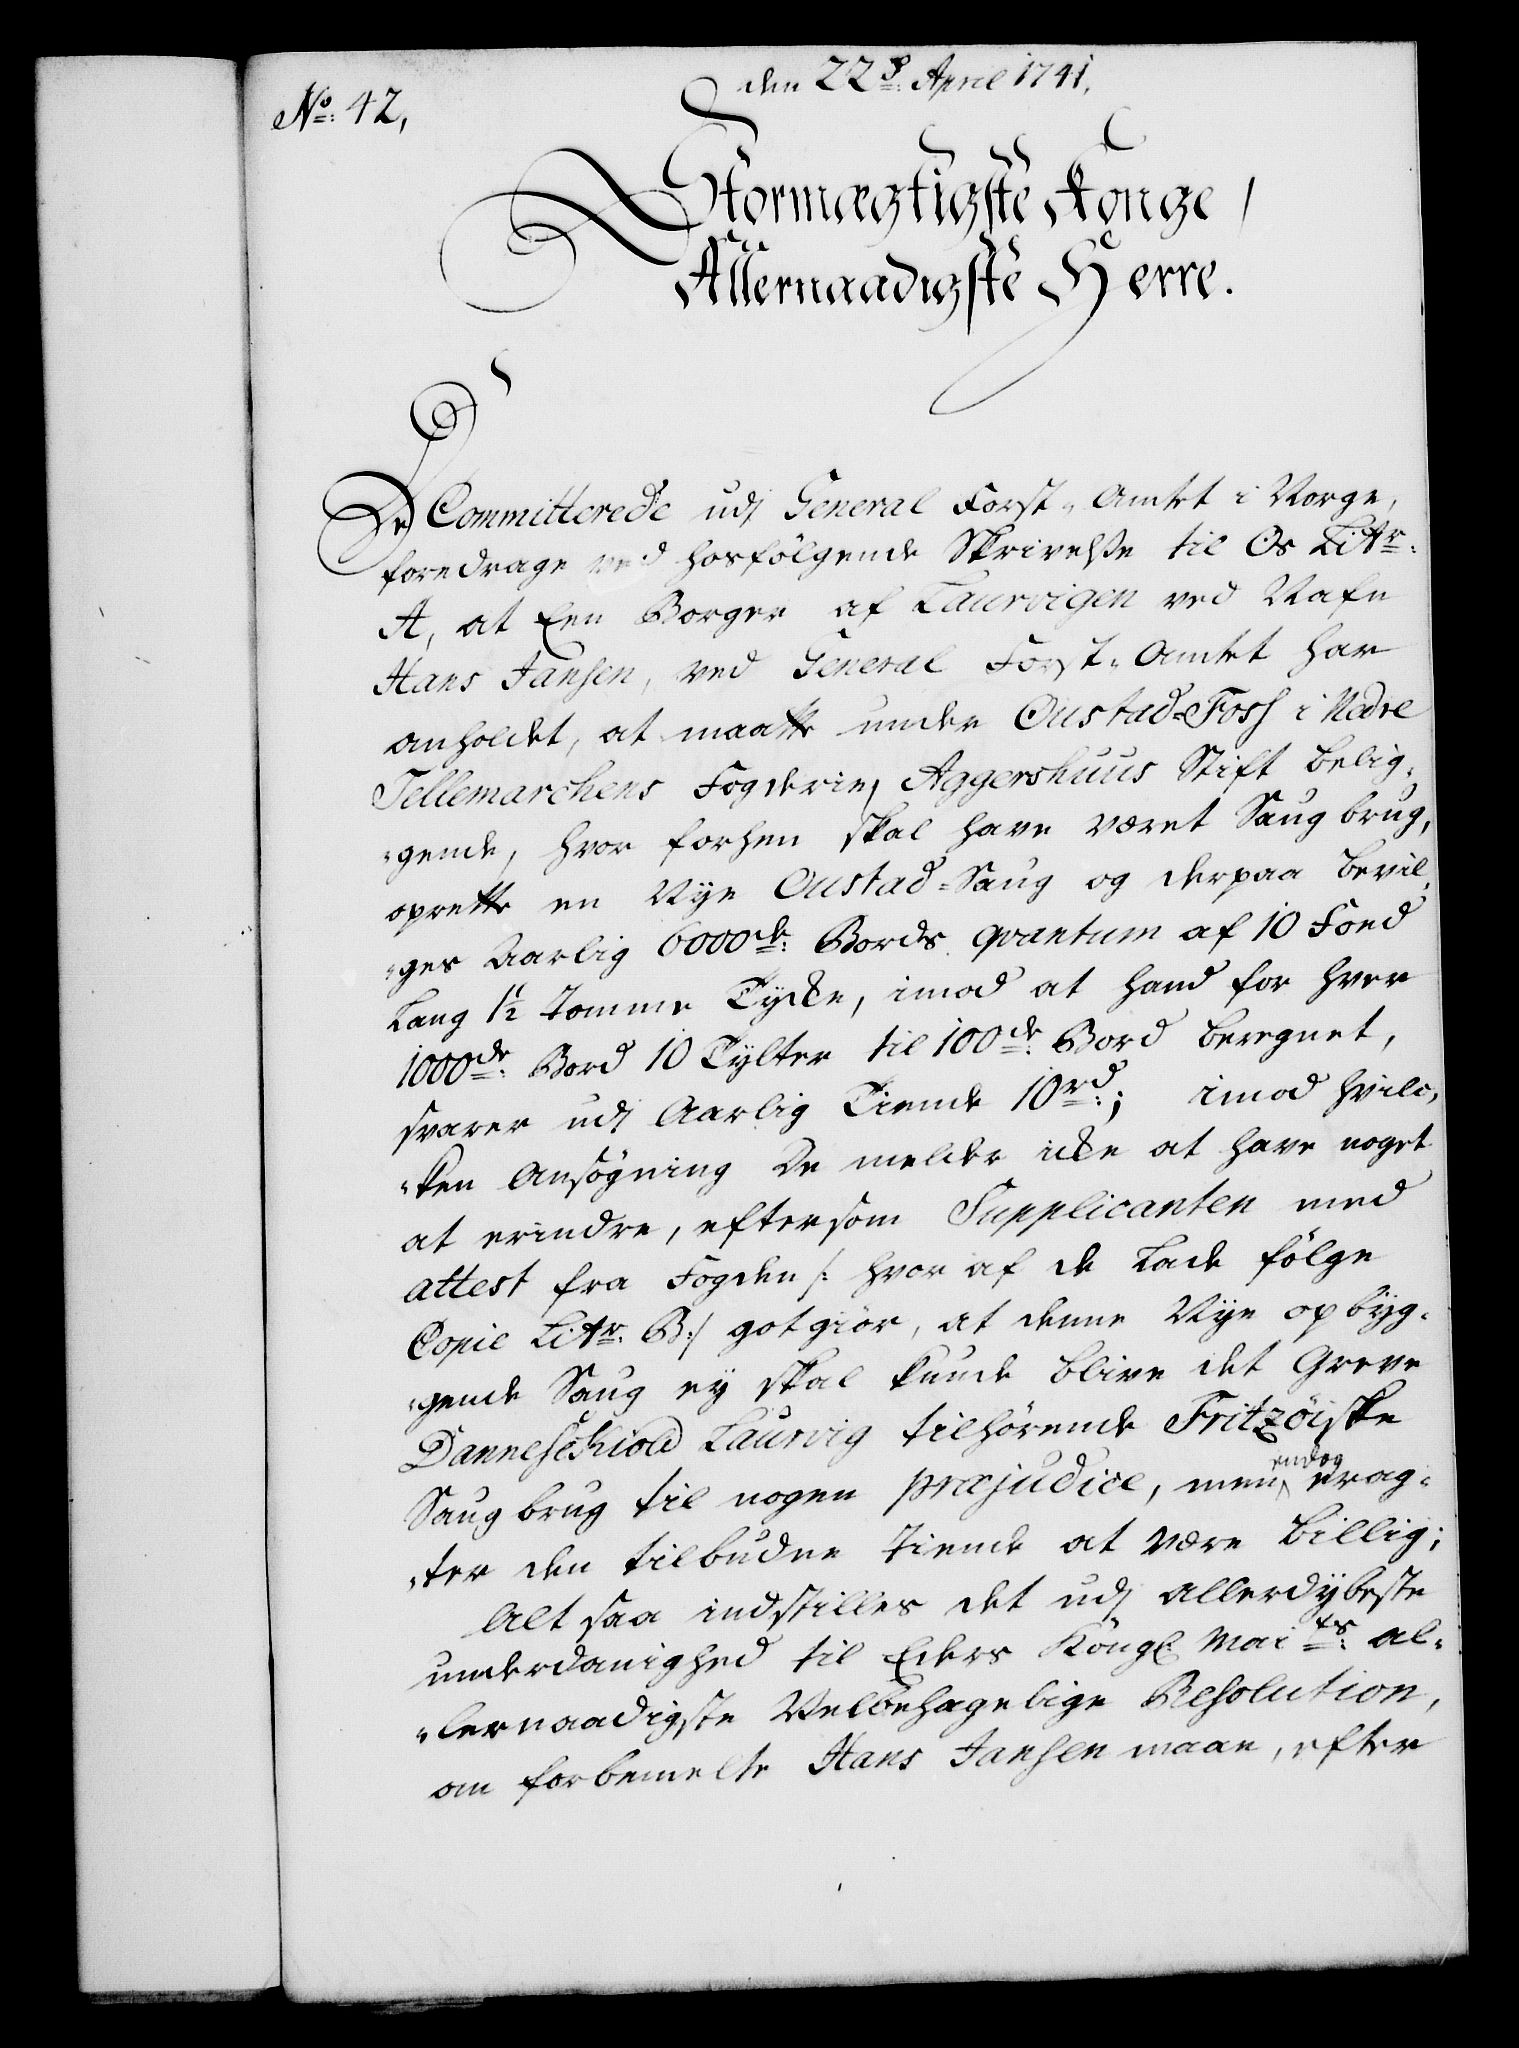 den 22d: April 1741.
No: 42,
Stormægtigste Konge,
Allernaadigste Herre.
De Committerede udj General Forst-Amtet i Norge,
foredrage ved hosfölgende Skrivelsse til Os Littr:
A, at Een Borger af Laurvigen ved Nafn
Hans Jansen, ved General Forst-Amtet har
anholdet, at maatte under Oustad-Foss i Nedre
Tellemarchens Fogderie, Aggershuus Stift belig-
-gende, hvor forhen skal have været Saug brug,
oprette en Nye Oustad-Saug og derpaa bevil-
-ges Aarlig 6000de: Bords qvantum af 10 Foed
Lang 1½ Tomme Tycke, imod at hand for hver
1000de: Bord 10 Tylter til 100de: Bord beregnet,
svarer udj Aarlig Tiende 10 rd:; imod hvilc-
-ken Ansögning De melder icke at have noget
at erindre, eftersom Supplicanten med
attest fra Fogden /: hvor af de Lade fölge
Copie Littr: B:/ got giör, at denne Nye opbyg-
-gende Saug ey skal kunde blive det Greve
Danneschiold Laurvig tilhörende Fritzöiske
Saug brug til nogen præjudice, men endog erag-
-ter den tilbudne Tiende at være billig;
Alt saa indstilles det udj allerdybeste
underdanighed til Eders Kongl: Maits: al-
-lernaadigste Velbehagelige Resolution,
om forbemelte Hans Jansen maae, efter